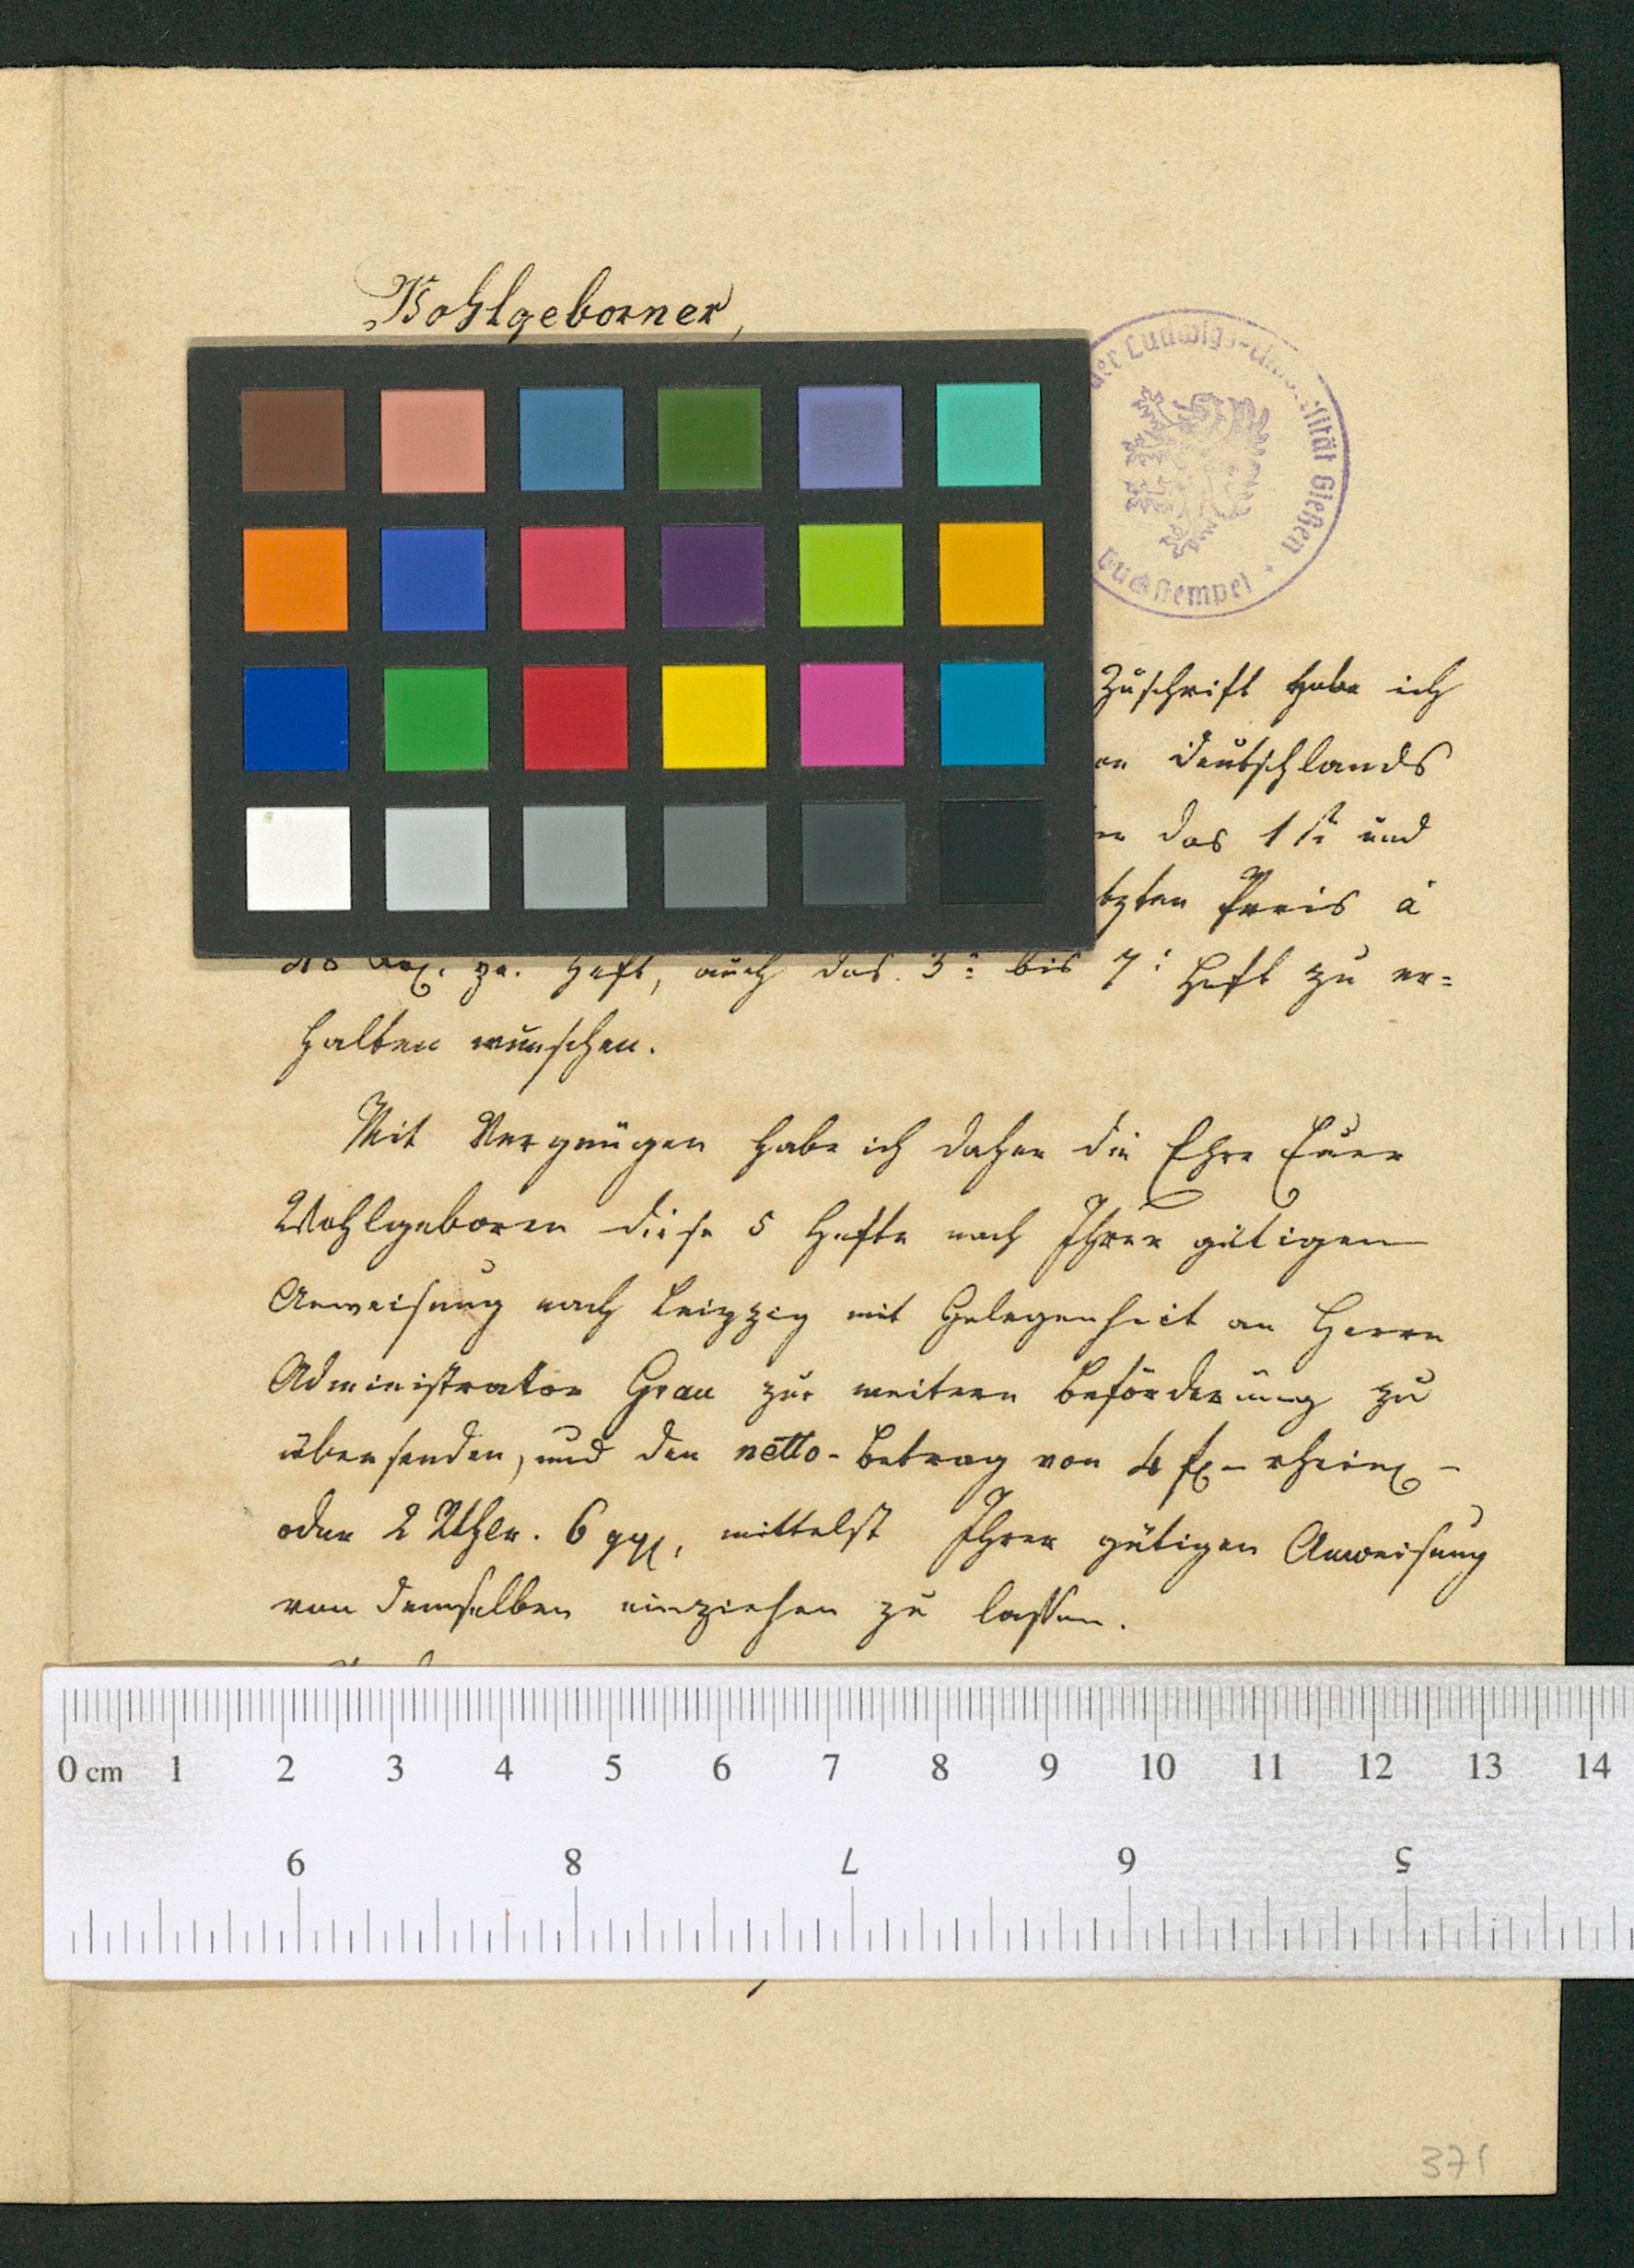 Wohlgeborner,
der Ludwigs-Universität Gießen
Buchstempel
Zuschrift habe ich
Deutschlands
das 1ste und
Preis à
48 Heft, auch das 3: bis 7: Heft zu er=
halten wünschen.
Mit Vergnügen habe ich daher die Ehre Euer
Wohlgeboren diese 5 Hefte nach Ihrer gütigen
Anweisung nach Leipzig mit Gelegenheit an Herrn
Administrator Grau zur weitern Beförderung zu
übersenden, und den netto-Betrag von 4 f - rhein -
oder 2 Rthlr. 6 ggr, mittelst Ihrer gütigen Anweisung
von demselben einziehen zu lassen.
0 cm 1 2 3 4 5 6 7 8 9 10 11 12 13 14
9 8 7 6 5
371